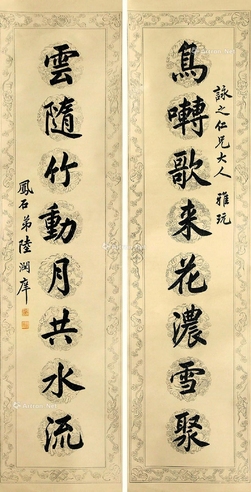 詠之仁兄大人 雅玩
鳥囀歌来花濃雪聚
雲隨竹動月共水流
鳳石弟陸潤庠